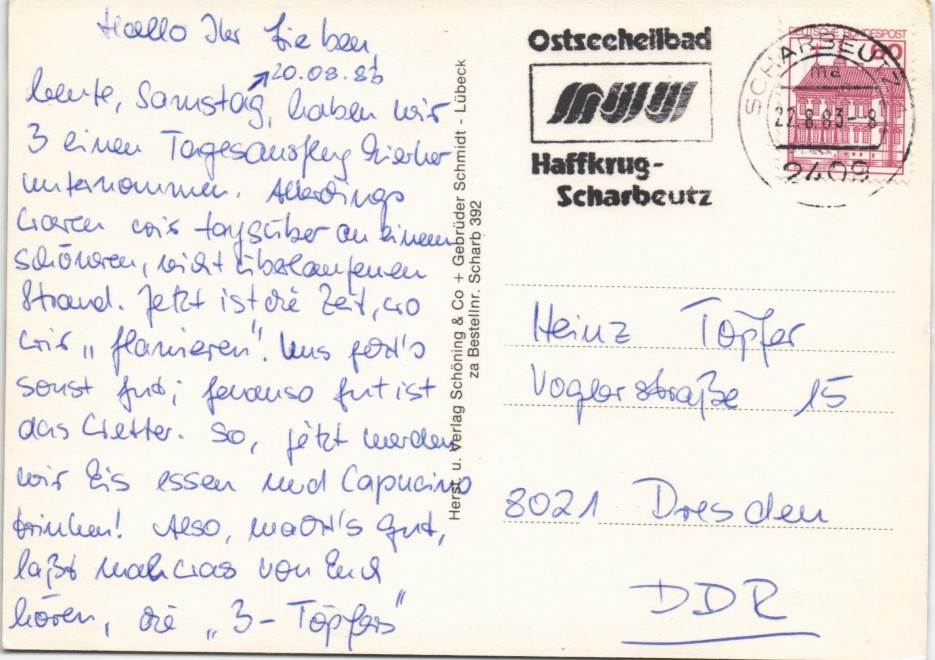 Hallo Ihr Lieben,
20.08.83
heute, Samstag, haben wir
3 einen Tagesausflug hierher
unternommen. Allerdings
waren wir tagsüber an einem
schöneren, nicht überlaufenen
Strand. Jetzt ist die Zeit, wo
wir „flanieren". Uns geht's
sonst gut; genauso gut ist
das Wetter. So, jetzt werden
wir Eis essen und Capucino
trinken! Also, macht's gut,
laßt mal was von Euch
hören, die „3-Töpfers"
Herst. u. Verlag Schöning & Co + Gebrüder Schmidt - Lübeck
za Bestellnr. Scharb 392
Ostseeheilbad
Haffkrug-
Scharbeutz
DEUTSCHE BUNDESPOST
SCHARBEUTZ
ma
22.8.83-8
2409
Heinz Töpfer
Voglerstraße 15
8021 Dresden
DDR